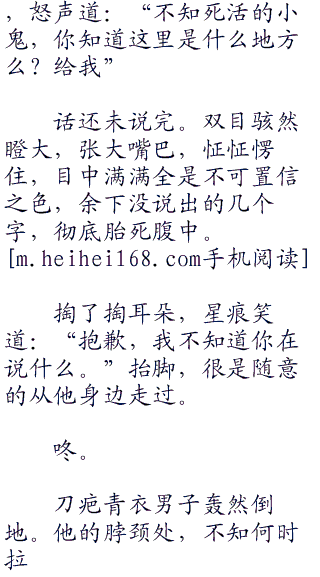 ，怒声道：“不知死活的小
鬼，你知道这里是什么地方
么？给我”
话还未说完。双目骇然
瞪大，张大嘴巴，怔怔愣
住，目中满满全是不可置信
之色，余下没说出的几个
字，彻底胎死腹中。
[m.heihei168.com手机阅读]
掏了掏耳朵，星痕笑
道：“抱歉，我不知道你在
说什么。”抬脚，很是随意
的从他身边走过。
咚。
刀疤青衣男子轰然倒
地。他的脖颈处，不知何时
拉